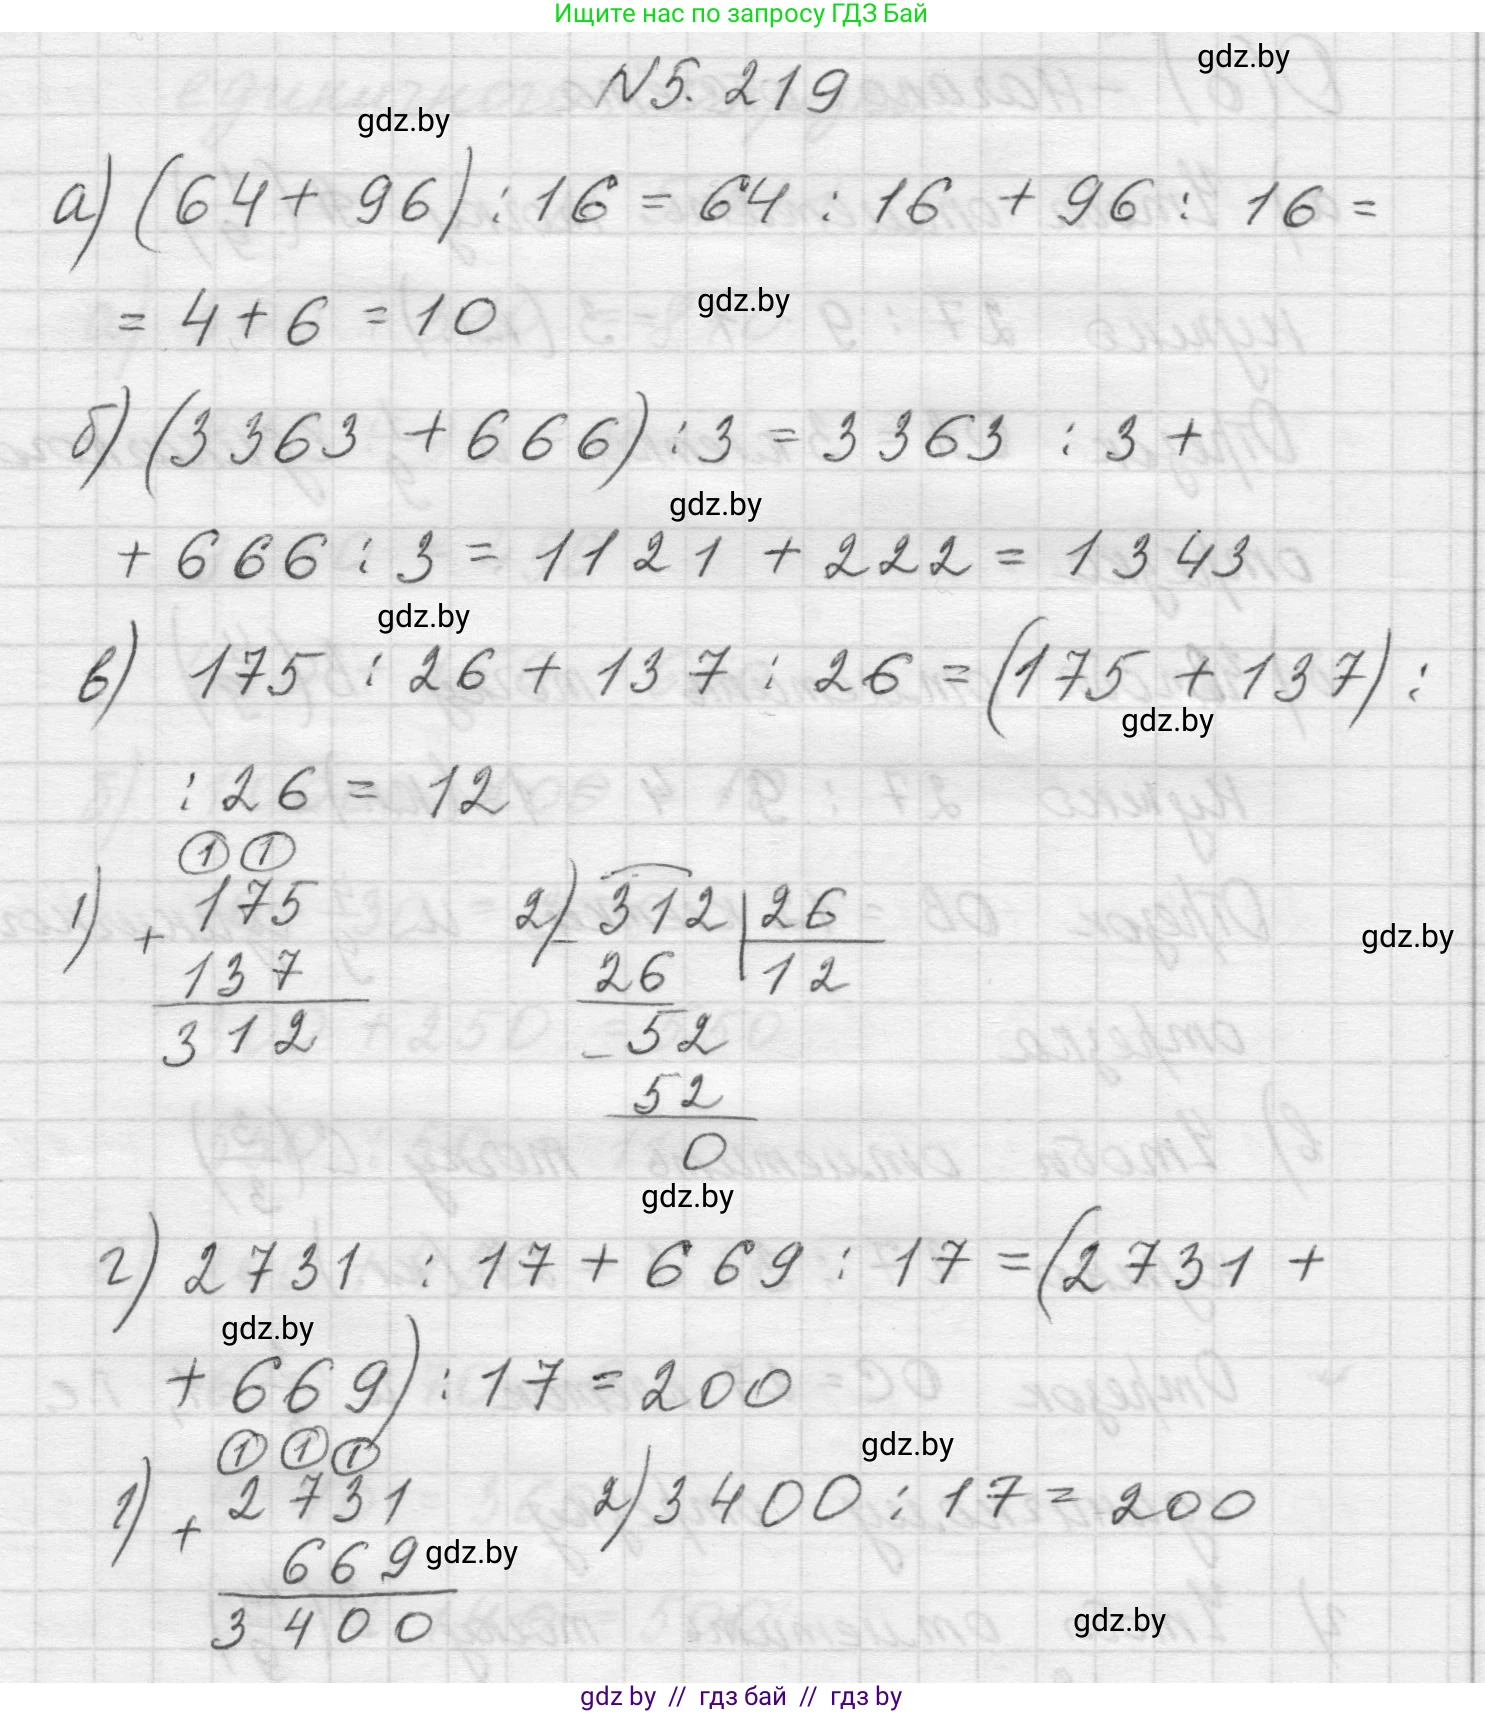 Ищите нас по запросу ГДЗ Бай
gdz.by
N 5. 219
gdz.by
а) (64 + 96) : 16 = 64 : 16 + 96 : 16 =
= 4 + 6 = 10
gdz.by
б) (3363 + 666) : 3 = 3363 : 3 +
gdz.by
+ 666 : 3 = 1121 + 222 = 1343
gdz.by
в) 175 : 26 + 137 : 26 = (175 + 137) :
gdz.by
: 26 = 12
1 1
1) + 175
137
312
2) - 312 26
26 12
- 52
52
0
gdz.by
gdz.by
г) 2731 : 17 + 669 : 17 = (2731 +
gdz.by
+ 669) : 17 = 200
1 1 1
gdz.by
1) + 2731
669
3400
2) 3400 : 17 = 200
gdz.by
gdz.by
gdz by // гдз бай // гдз by